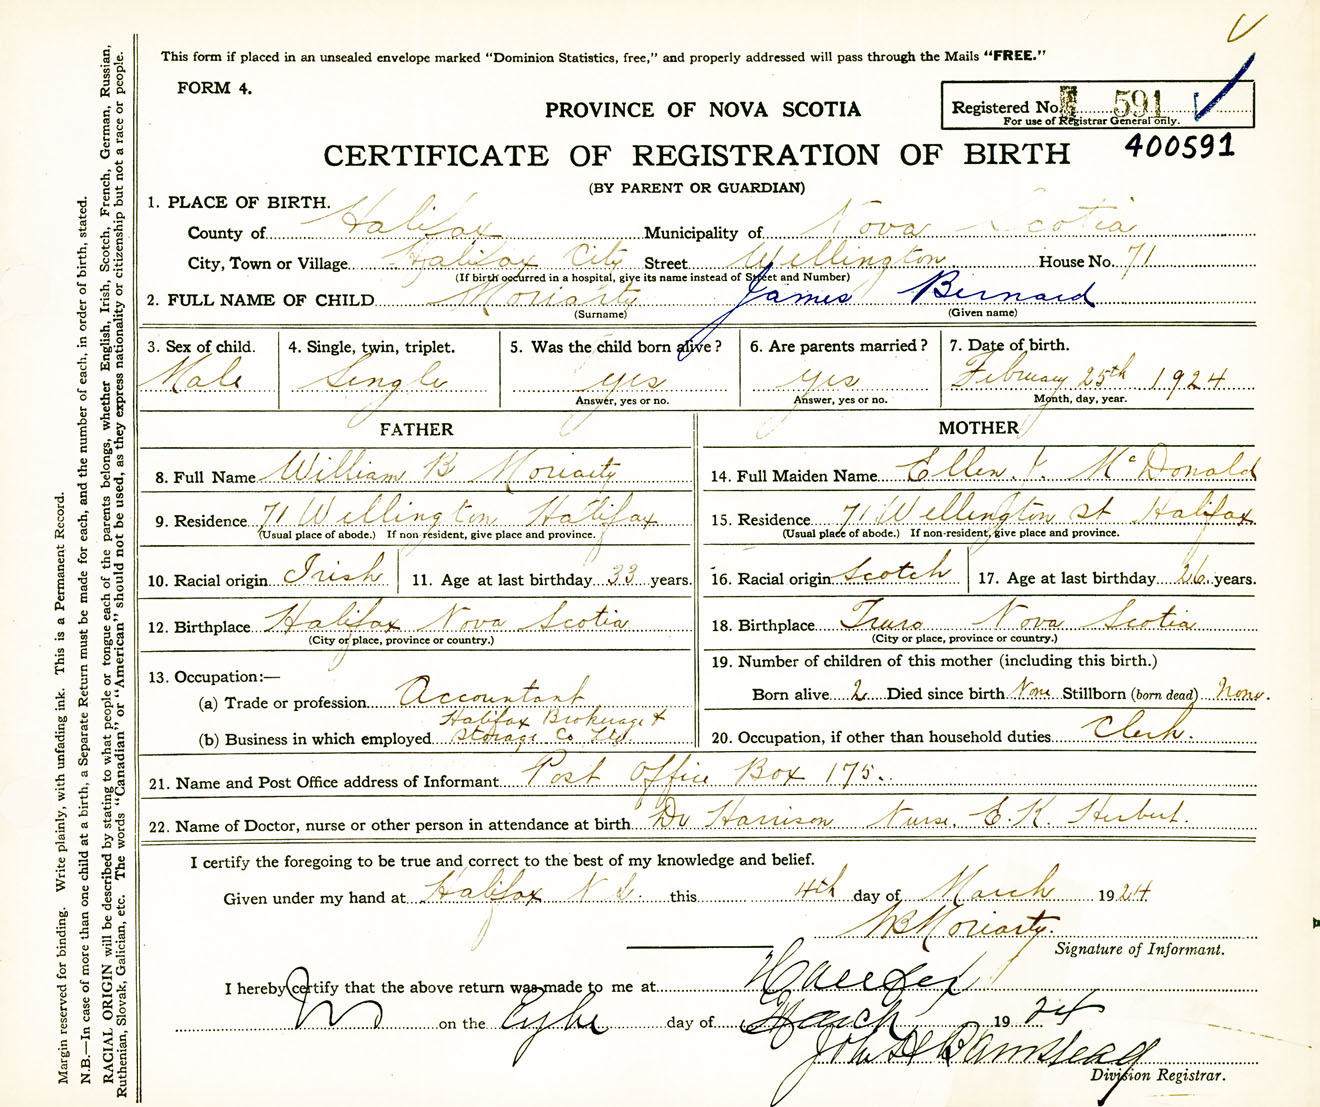 This form if placed in an unsealed envelope marked "Dominion Statistics, free," and properly addressed will pass through the Mails "FREE."
FORM 4.
PROVINCE OF NOVA SCOTIA
Registered No. 591
For use of Registrar General only.
400591
CERTIFICATE OF REGISTRATION OF BIRTH
(BY PARENT OR GUARDIAN)
1. PLACE OF BIRTH.
County of Halifax Municipality of Nova Scotia
City, Town or Village Halifax City Street Wellington House No. 71
(If birth occurred in a hospital, give its name instead of Street and Number)
2. FULL NAME OF CHILD Moriarty James Bernard
(Surname) (Given name)
3. Sex of child. 4. Single, twin, triplet. 5. Was the child born alive? 6. Are parents married? 7. Date of birth.
Male Single yes yes February 25th 1924
Answer, yes or no. Answer, yes or no. Month, day, year.
FATHER MOTHER
8. Full Name William B Moriarty 14. Full Maiden Name Ellen J. McDonald
9. Residence 71 Wellington Halifax 15. Residence 71 Wellington st Halifax
(Usual place of abode.) If non resident, give place and province. (Usual place of abode.) If non-resident, give place and province.
10. Racial origin Irish 11. Age at last birthday 33 years. 16. Racial origin Scotch 17. Age at last birthday 26 years.
12. Birthplace Halifax Nova Scotia 18. Birthplace Truro Nova Scotia
(City or place, province or country.) (City or place, province or country.)
13. Occupation:— 19. Number of children of this mother (including this birth.)
(a) Trade or profession Accountant Born alive 2 Died since birth None Stillborn (born dead) None.
(b) Business in which employed Halifax Brokerage & Storage Co Ltd. 20. Occupation, if other than household duties Clerk.
21. Name and Post Office address of Informant Post Office Box 175.
22. Name of Doctor, nurse or other person in attendance at birth Dr Harrison Nurse. E. K. Herbert.
I certify the foregoing to be true and correct to the best of my knowledge and belief.
Given under my hand at Halifax N S. this 4th day of March 1924
WB Moriarty.
Signature of Informant.
I hereby certify that the above return was made to me at Halifax
on the day of March 1924
John H Barnstead
Division Registrar.
Margin reserved for binding. Write plainly, with unfading ink. This is a Permanent Record.
N.B.—In case of more than one child at a birth, a Separate Return must be made for each, and the number of each, in order of birth, stated.
RACIAL ORIGIN will be described by stating to what people or tongue each of the parents belongs, whether English, Irish, Scotch, French, German, Russian,
Ruthenian, Slovak, Galician, etc. The words "Canadian" or "American" should not be used, as they express nationality or citizenship but not a race or people.